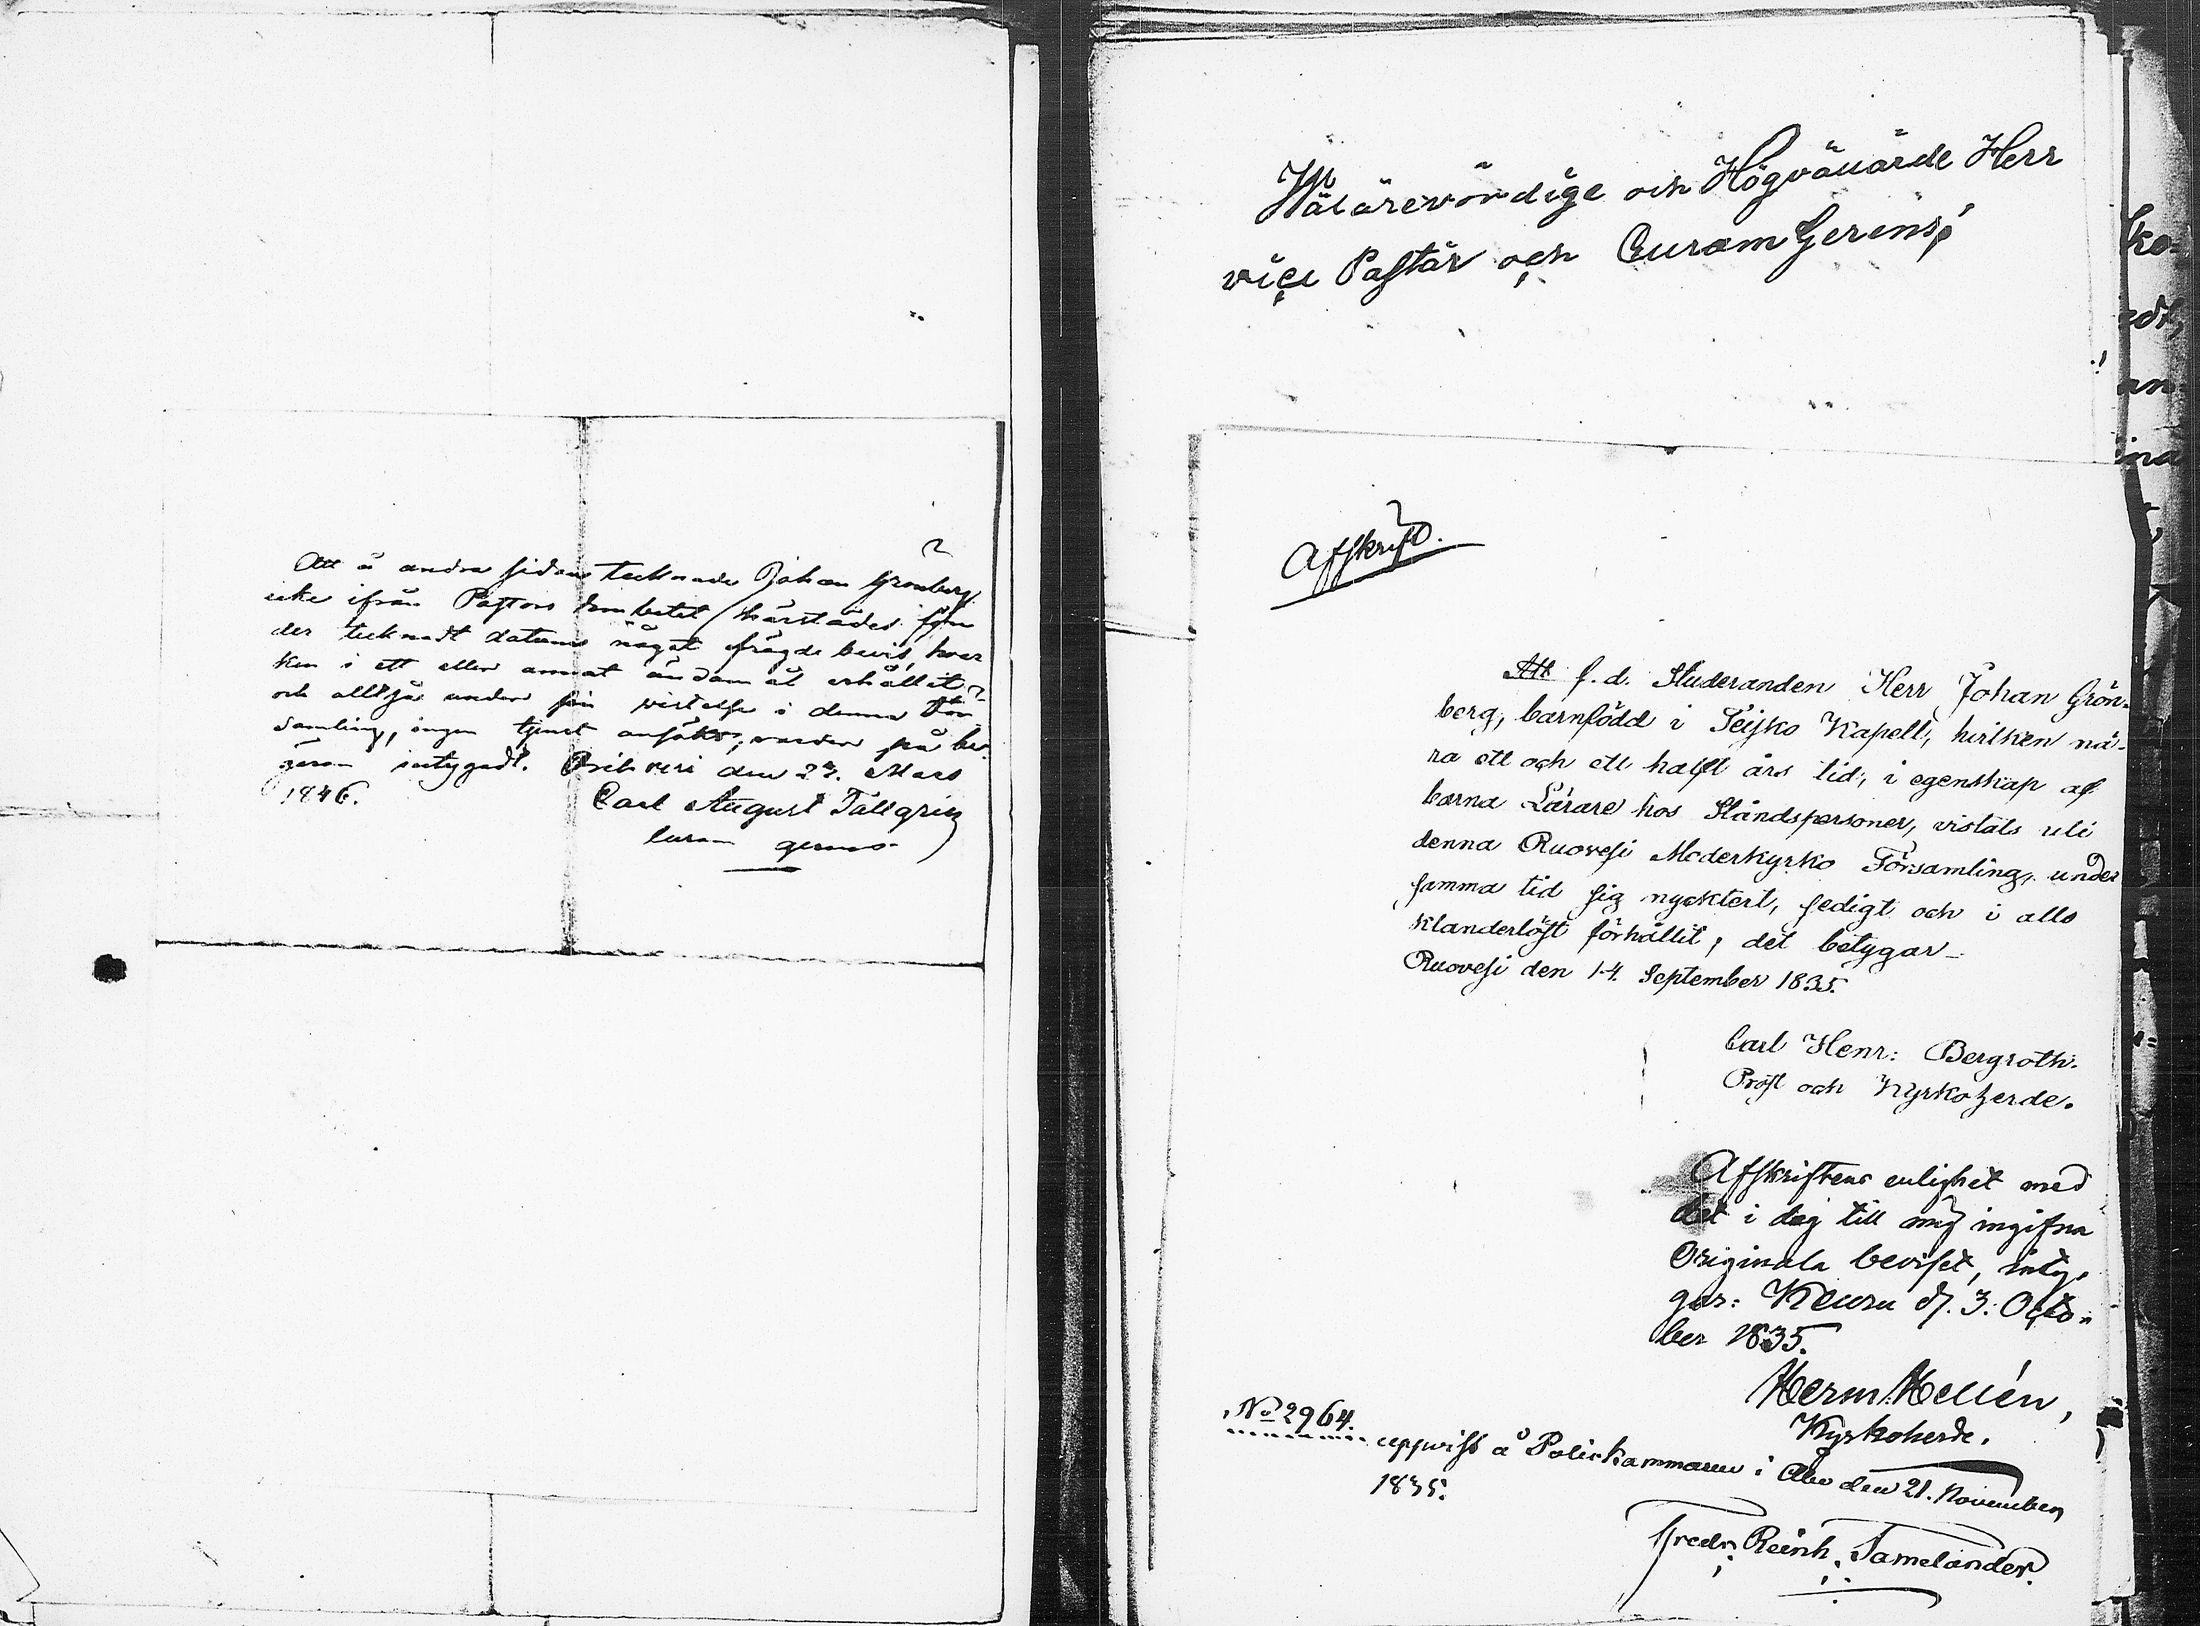 Att å andra sidan tecknade Johan Grönberg
icke ifrån Pastors Embetet härstädes före
der tecknadt datum något frägde bevis, hvar
ken i ett eller annat ändamål erhållit
och alltså under sin vistelse i denna För
samling, ingen tjenst ansökt, varder på be
gäran intygadt. Birkkala den 23. Mars
1846.
Carl August Tallgren
Curam gerens
Wälärevördige och Högvälärde Herr
vice Pastor och Curam Gerens!
Afskrift.
Att f. d. Studeranden Herr Johan Grön-
berg, barnfödd i Teisko Kapell, hvilken nä-
ra ett och ett halft års tid, i egenskap af
barna Lärare hos Ståndspersoner, vistats uti
denna Ruovesi Moderkyrko Församling, under
samma tid sig nycktert, sedigt och i allo
klanderlöst förhållit, det betygar
Ruovesi den 14. September 1835.
Carl Henr: Bergroth.
Prost och Kyrkoherde.
Afskriftens enlighet med
det i dag till mig ingifna
Originala beviset, inty-
gar: Keuru d. 3. Octo-
ber 1835.
Herm: Hellén,
Kyrkoherde.
No 2964.
uppvist å Poliskammaren i Åbo den 21. November
1835.
Fredr. Reinh. Tamelander.